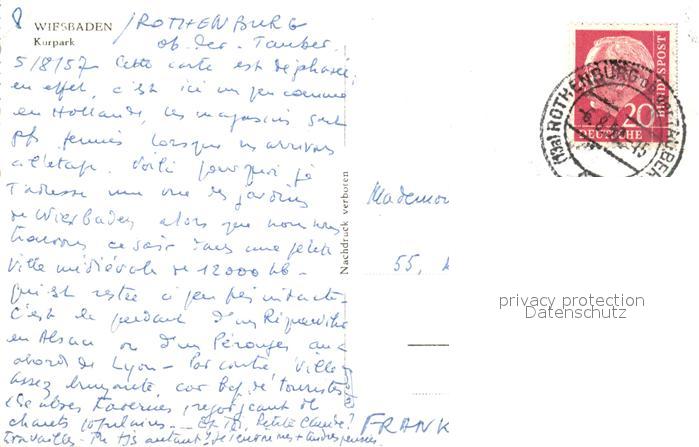 8 WIESBADEN
Kurpark
/ROTHENBURG
ob. der. Tauber.
5/8/57. Cette carte est déphasée,
en effet, c'est ici un peu comme
en Hollande, les magasins sont
pfs fermés lorsque ns arrivons
à l'étape. Voilà pourquoi je
t'adresse une vue des jardins
de Wiesbaden alors que nous nous
trouvons ce soir dans une petite
ville médiévale de 12000 hb.
qui est restée à peu près intacte.
C'est le pendant d'un Riquewihr
en Alsace ou d'un Pérouges aux
abords de Lyon - Par contre, ville
assez bruyante, car bcp de touristes
tavernes, regorgeant de
chants populaires - Et toi, Petite Claire?
Travailles-tu tjs autant?
Nachdruck verboten
Mademoi
55,
FRANK
20
DEUTSCHE
BUNDESPOST
(13a) ROTHENBURG o. TAUBER
privacy protection
Datenschutz